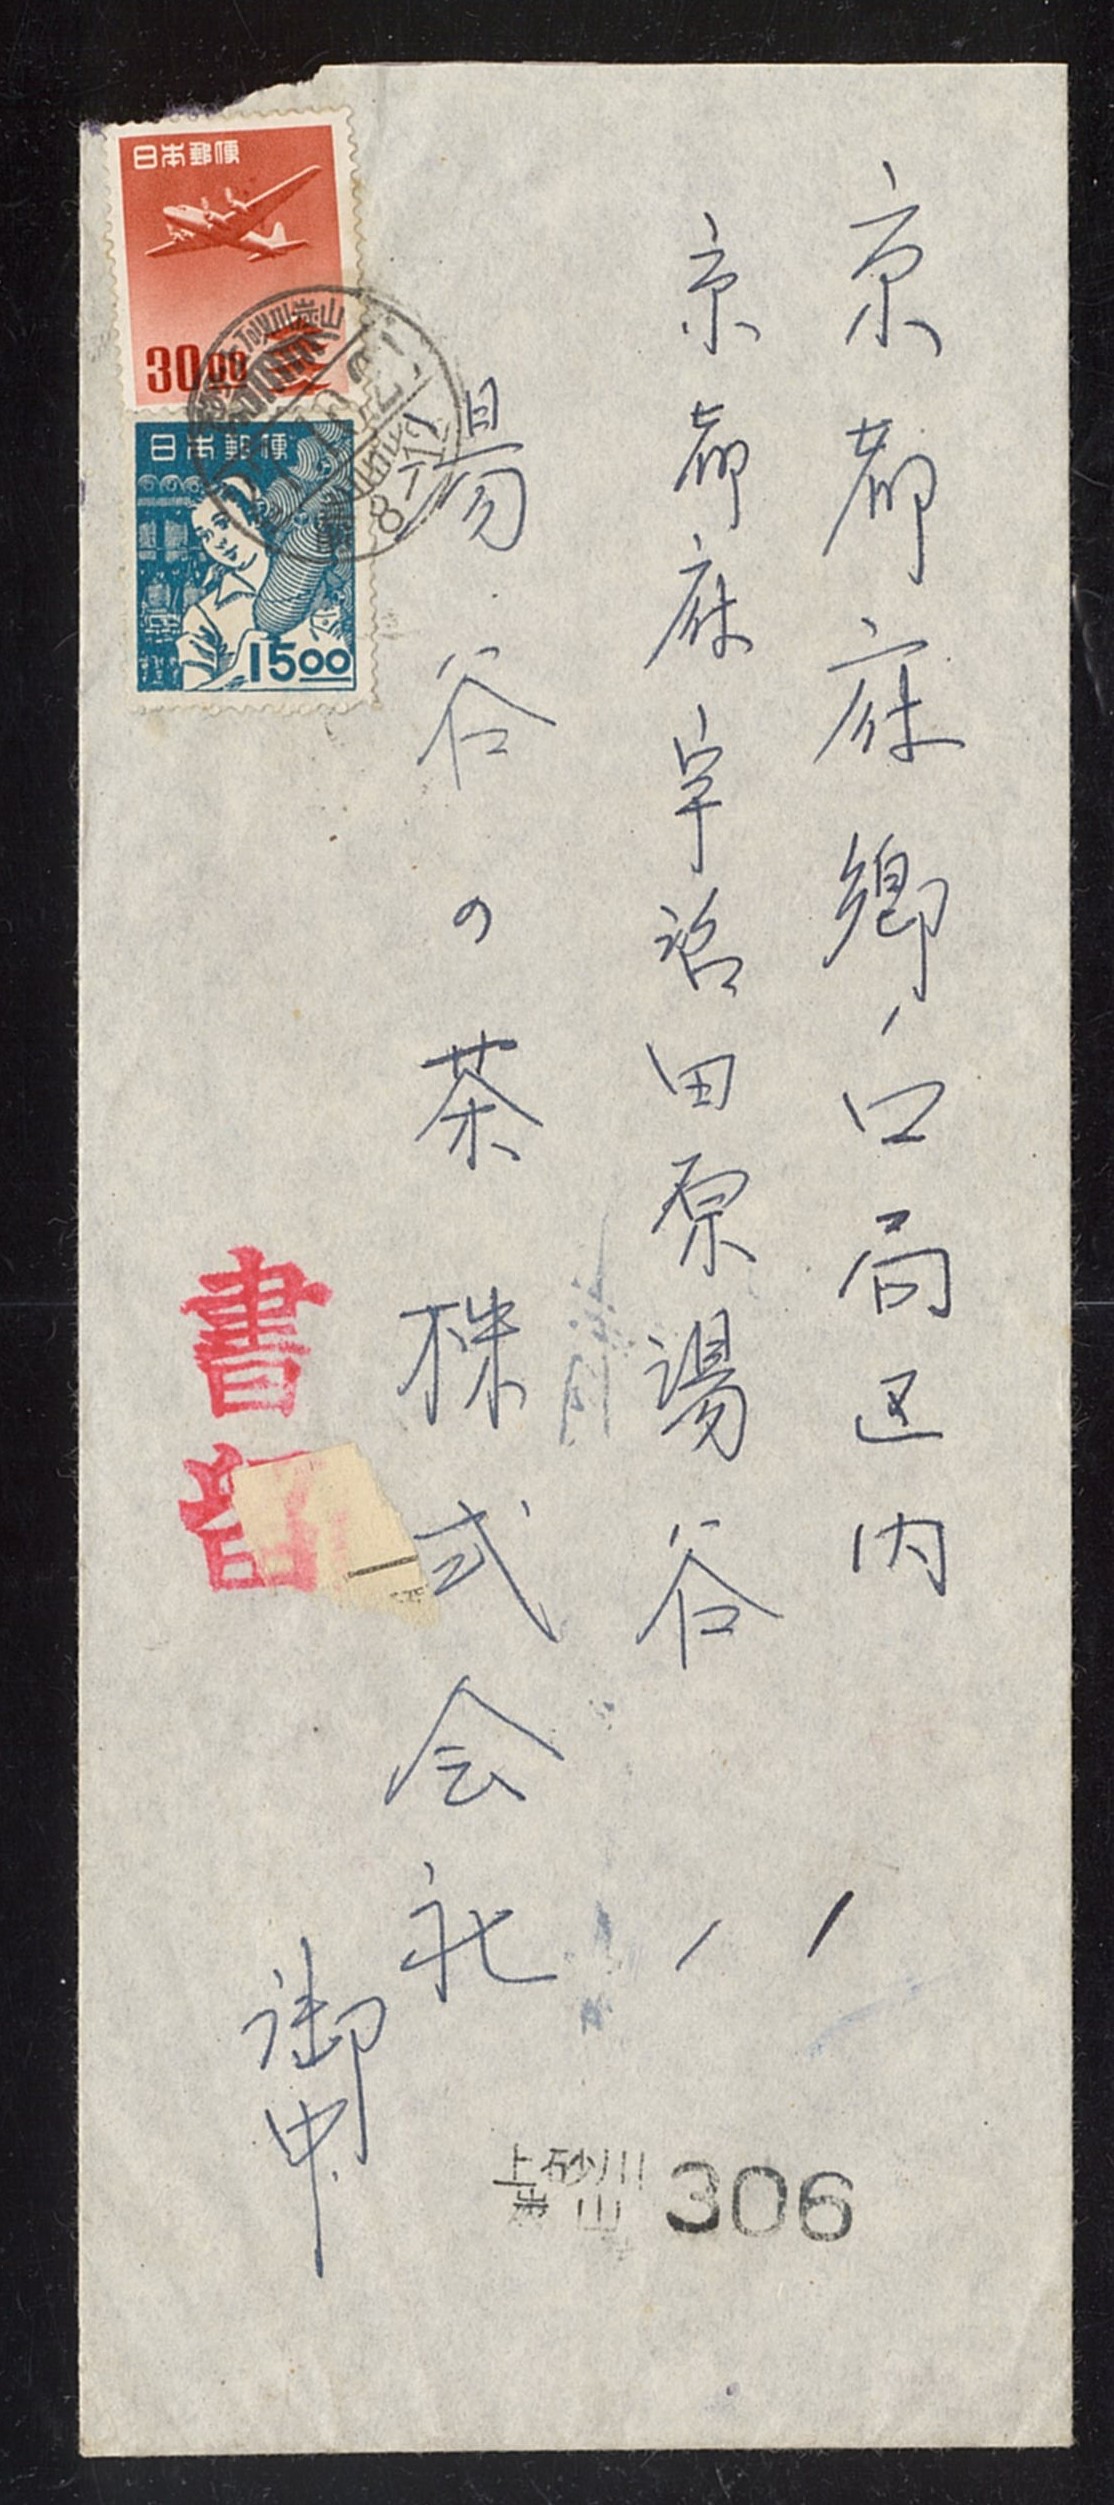 京都府郷ノ口局区内
京都府宇治田原湯谷
湯谷の茶株式会社
御中
日本郵便
30.00
日本郵便
15.00
8-12
書
上砂川
炭山
306